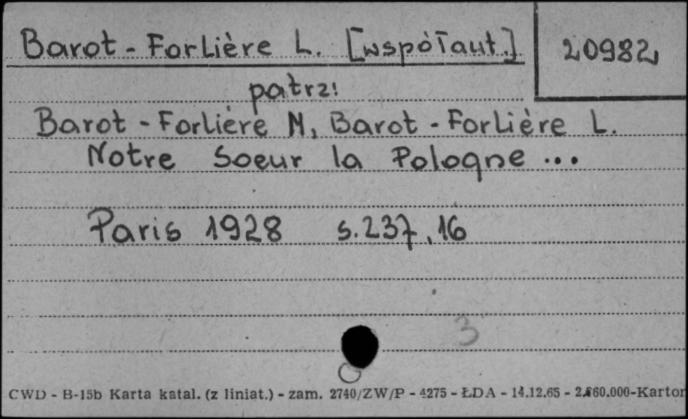 Barot - Forlière L. [współaut.]
20982
patrz!
Barot - Forlière M, Barot - Forlière L.
Notre Soeur la Pologne ...
Paris 1928 s. 237, 16
3
CWD - B-15b Karta katal. (z liniat.) - zam. 2740/ZW/P - 4275 - ŁDA - 14.12.65 - 2.860.000-Karton